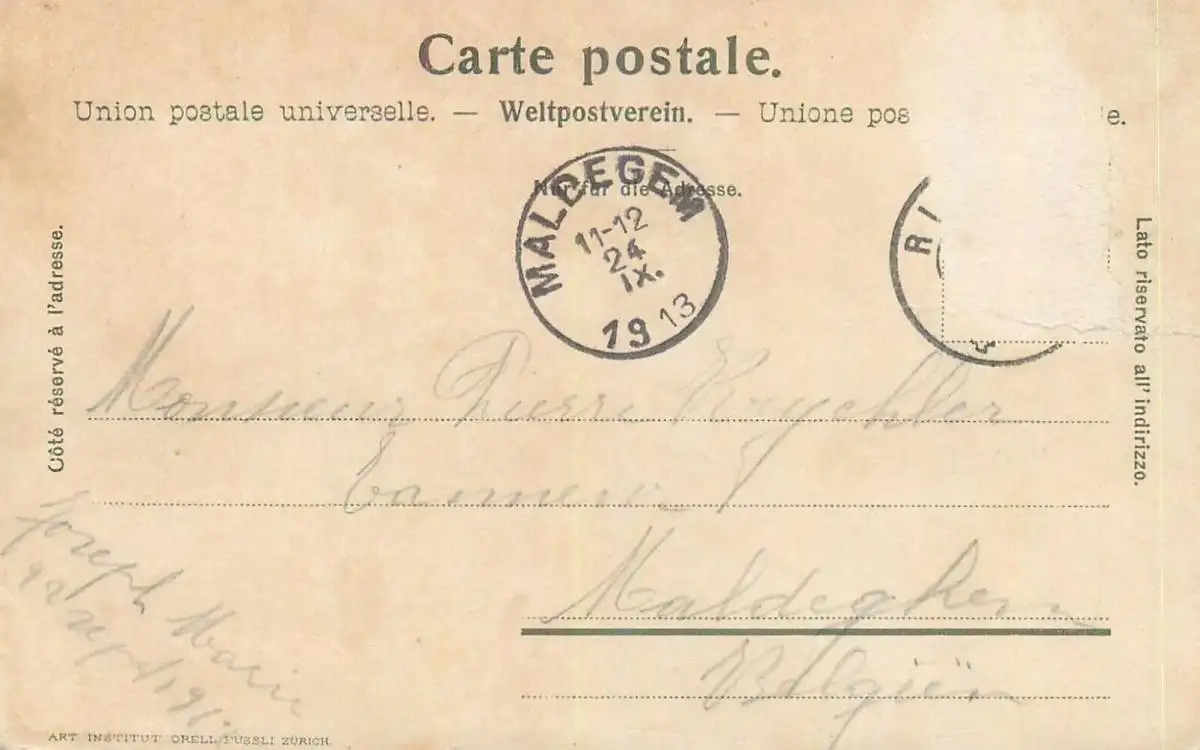 Carte postale.
Union postale universelle. — Weltpostverein. — Unione pos e.
Nur für die Adresse.
MALDEGEM
11-12
24
IX.
1913
RI
Côté réservé à l'adresse.
Lato riservato all' indirizzo.
Monsieur Pierre
Maldeghem
Belgiën
Joseph Marie
sept 191
ART INSTITUT ORELL FÜSSLI ZÜRICH.